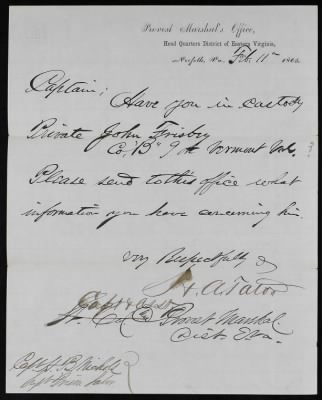 Provost Marshal's Office,
Head Quarters District of Eastern Virginia,
Norfolk, Va. Feb. 11th 1865
Captain;
Have you in custody
Private John Frisby
Co. "B" 9th Vermont Vols. ?
Please send to this office what
information you have concerning him.
Very Respectfully
A. Tator
Capt & Asst
Provost Marshal
Dist. E. Va.
Capt